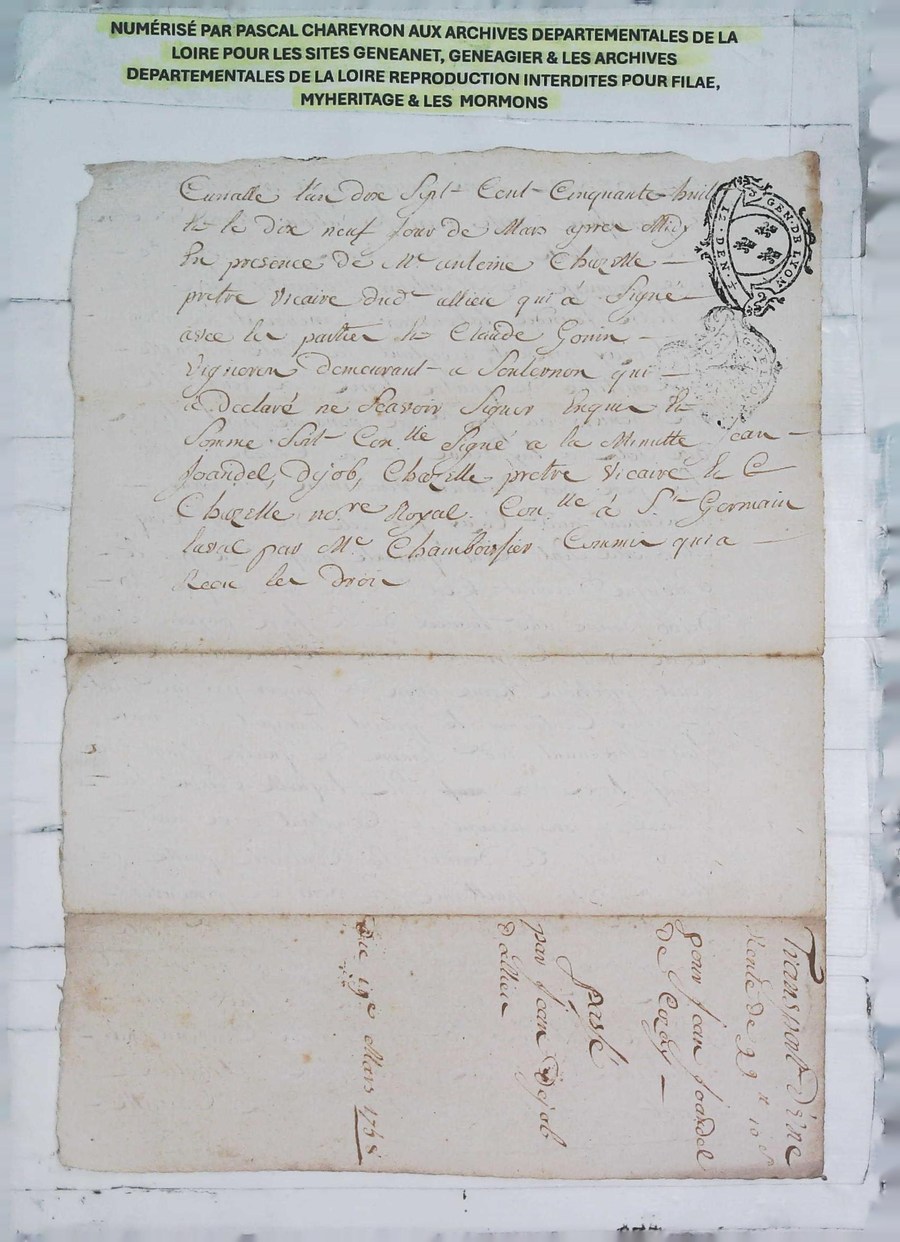 NUMÉRISÉ PAR PASCAL CHAREYRON AUX ARCHIVES DEPARTEMENTALES DE LA
LOIRE POUR LES SITES GENEANET, GENEAGIER & LES ARCHIVES
DEPARTEMENTALES DE LA LOIRE REPRODUCTION INTERDITES POUR FILAE,
MYHERITAGE & LES MORMONS
l'an dix Sept Cent Cinquante huit
Et le dix neuf Jour de Mars apres Midy
En presence de Me antoine Chazelle
pretre vicaire dud allieu qui à Signé
avec les parties Et Claude Gonin
Vigneron demeurant a Souternon qui
a Declaré ne Scavoir Signer Enquis Et
Sommé Soit Conlle Signé a la Minutte Jean
Joandel, Dejob, Chazelle pretre Vicaire Et C
Chazelle nore Royal. Conlle à St Germain
laval par Me Chamboissier Commis qui a
Receu les droits
GEN. DE LYON
Transport d'une
Rente de
pour Jean Joandel
de
passé
par Jean Dejob
d'allieu
Du 19e Mars 1758